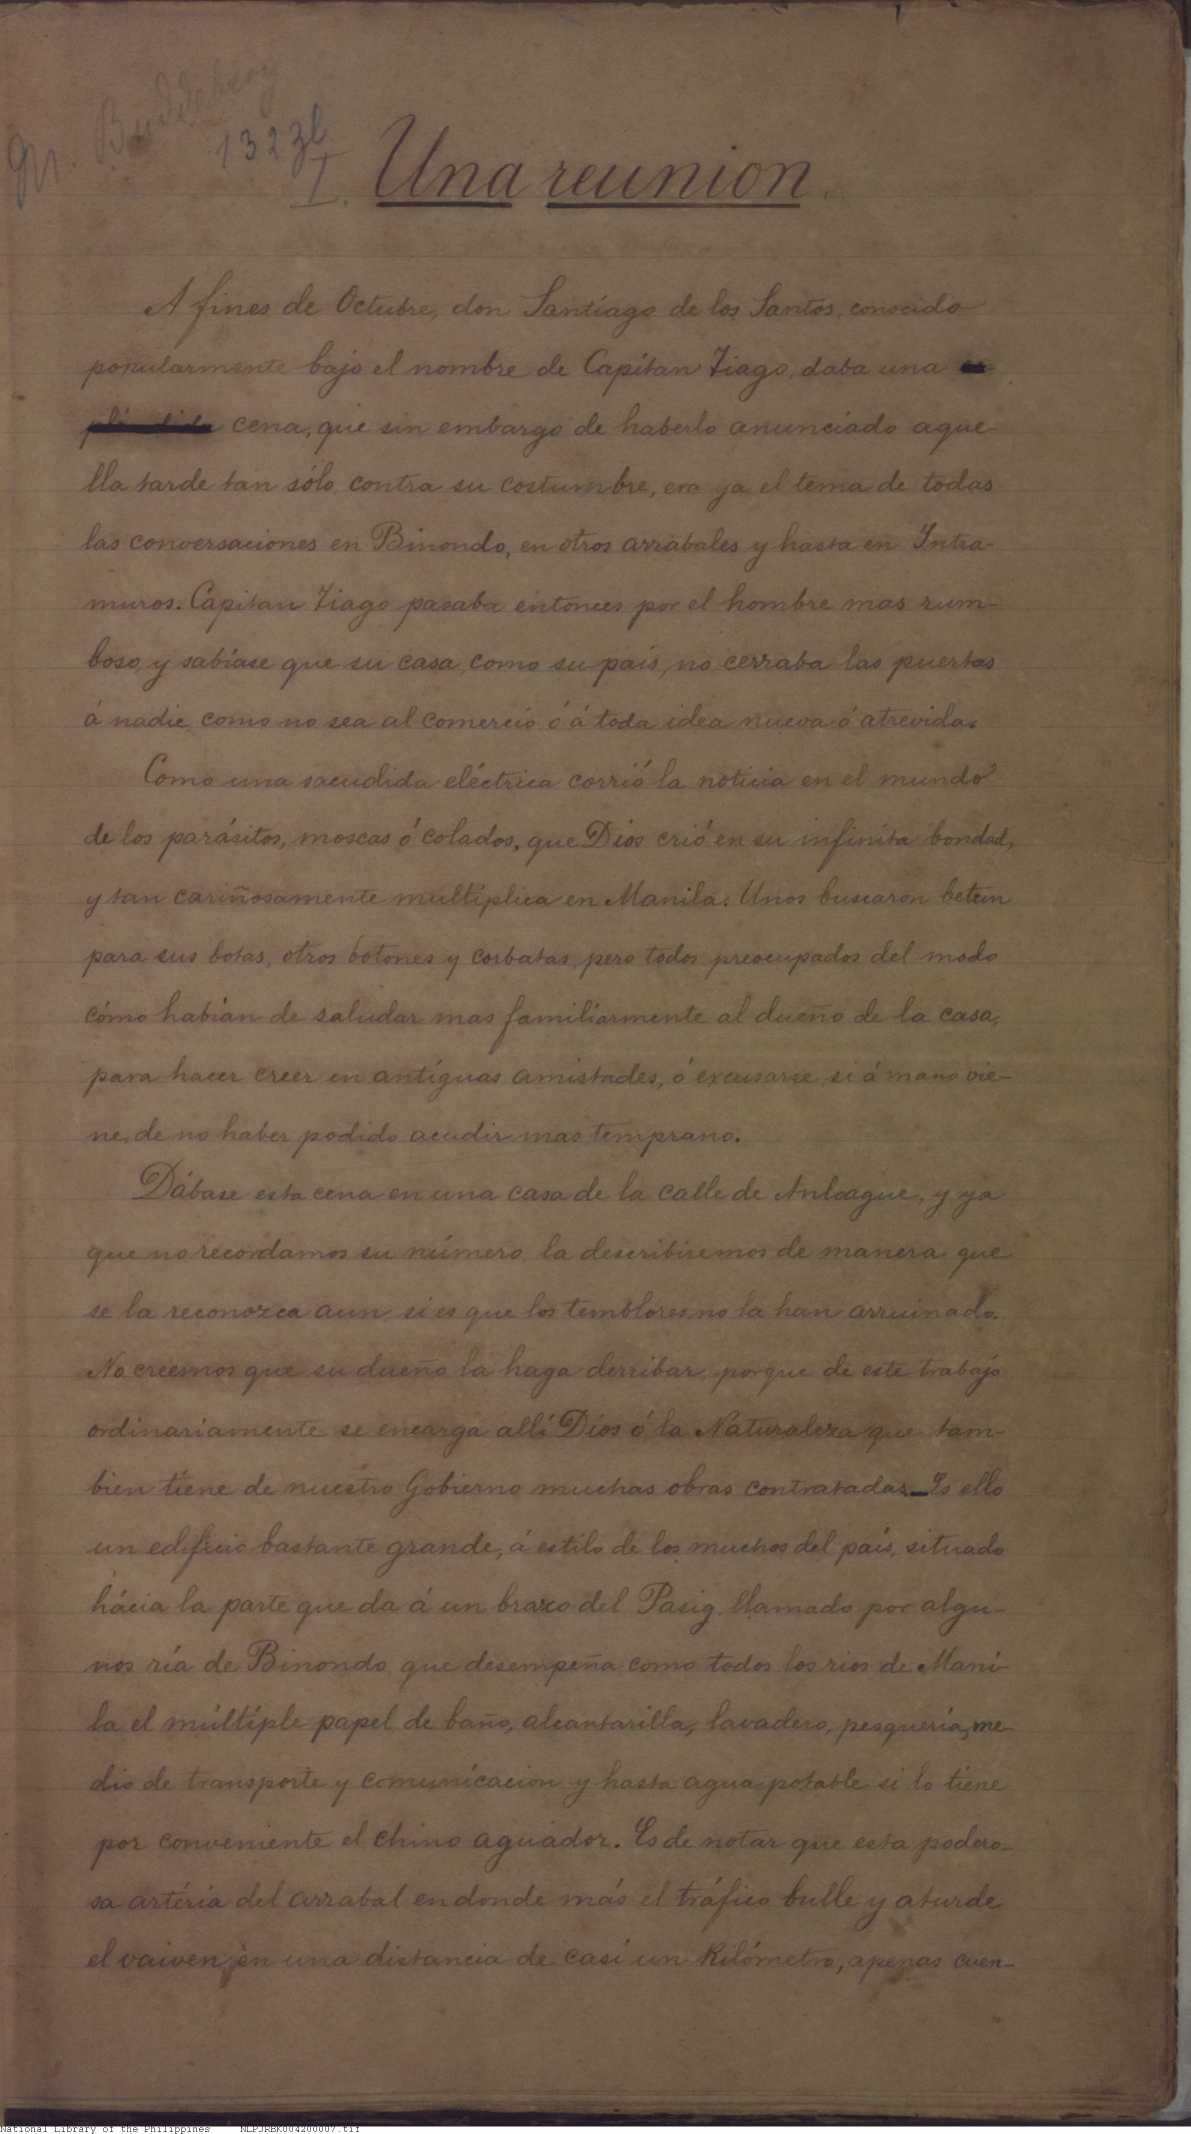 M. Buddeberg
1323l
I. Una reunion.
A fines de Octubre, don Santiago de los Santos, conocido
popularmente bajo el nombre de Capitan Tiago, daba una
cena, que sin embargo de haberlo anunciado aque-
lla tarde tan sólo, contra su costumbre, era ya el tema de todas
las conversaciones en Binondo, en otros arrabales y hasta en Intra-
muros. Capitan Tiago pasaba entonces por el hombre mas rum-
boso, y sabíase que su casa, como su país, no cerraba las puertas
á nadie, como no sea al comercio ó á toda idea nueva ó atrevida.
Como una sacudida eléctrica corrió la noticia en el mundo
de los parásitos, moscas ó colados, que Dios crió en su infinita bondad,
y tan cariñosamente multiplica en Manila. Unos buscaron betun
para sus botas, otros botones y corbatas, pero todos preocupados del modo
cómo habían de saludar mas familiarmente al dueño de la casa,
para hacer creer en antíguas amistades, ó excusarse, si á mano vie-
ne, de no haber podido acudir mas temprano.
Dábase esta cena en una casa de la calle de Anloague, y ya
que no recordamos su número, la describiremos de manera que
se la reconozca aun, si es que los temblores no la han arruinado.
No creemos que su dueño la haga derribar, porque de este trabajo
ordinariamente se encarga allí Dios ó la Naturaleza que tam-
bien tiene de nuestro Gobierno muchas obras contratadas._ Es ello
un edificio bastante grande, á estilo de los muchos del país, situado
hácia la parte que da á un brazo del Pasig, llamado por algu-
nos ría de Binondo, que desempeña como todos los rios de Mani-
la el múltiple papel de baño, alcantarilla, lavadero, pesquería, me-
dio de transporte y comunicacion y hasta agua potable si lo tiene
por conveniente el chino aguador. Es de notar que esta podero-
sa artéria del arrabal en donde más el tráfico bulle y aturde
el vaiven, en una distancia de casi un Kilómetro, apenas cuen-
National Library of the Philippines NLPJRBK004200007.tif